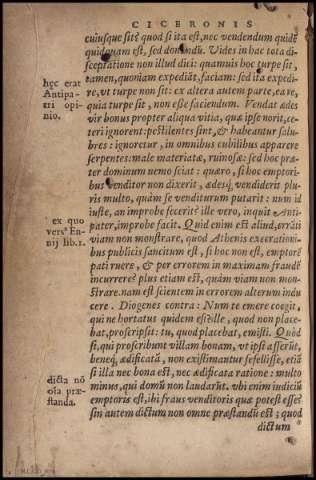 CICERONIS
cuiusque sit? quod si ita est, nec vendendum quidē
quidquam est, sed donādū. Vides in hac tota di-
sceptatione non illud dici: quamuis hoc turpe sit,
tamen, quoniam expediāt, faciam: sed ita expedi-
hęc erat
re, vt turpe non sit: ex altera autem parte, ea re,
Antipa-
quia turpe sit, non esse faciendum. Vendat ędes
tri opi-
vir bonus propter aliqua vitia, quæ ipse norit, ce-
nio.
teri ignorent: pestilentes sint, & habeantur salu-
bres: ignoretur, in omnibus cubilibus apparere
serpentes: male materiatæ, ruinosæ: sed hoc præ-
ter dominum nemo sciat: quæro, si hoc emptori-
bus venditor non dixerit, ædesq́ vendiderit plu-
ris multo, quàm se venditurum putarit: num id
iuste, an improbe fecerit? ille vero, inquit Anti-
pater, improbe facit. Quid enim est aliud, errāti
ex quo
viam non monstrare, quod Athenis execrationi-
vers? En-
bus publicis sancitum est, si hoc non est, emptorē
nij lib.1.
pati ruere, & per errorem in maximam fraudē
incurrere? plus etiam est, quàm viam non mon-
strare. nam est scientem in errorem alterum indu
cere. Diogenes contra: Num te emere coegit,
qui ne hortatus quidem est? ille, quod non place-
bat, proscripsit: tu, quod placebat, emisti. Quòd
si, qui proscribunt villam bonam, vt ipsi asserūt,
beneq́, ædificatā, non existimantur fefellisse, etiā
si illa nec bona est, nec ædificata ratione: multo
dicta nō
minus, qui domū non laudarūt. vbi enim iudiciū
oīa præ-
emptoris est, ibi fraus venditoris quæ potest esse?
standa.
sin autem dictum non omne præstandū est; quod
dictum